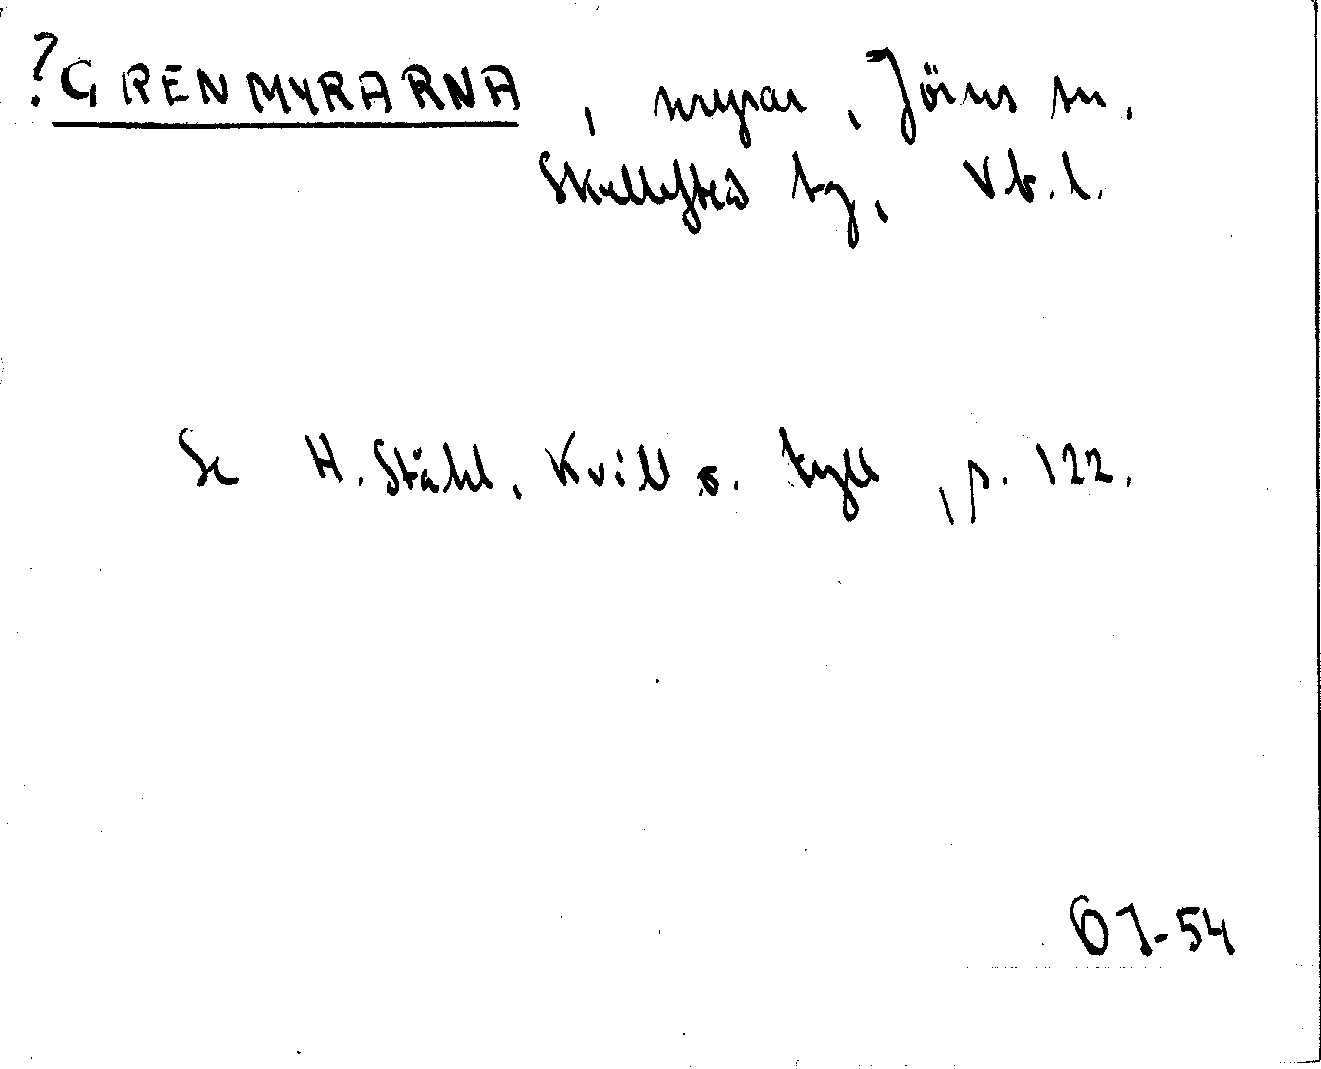 ?GRENMYRARNA, myrar, Jörns sn.
Skellefteå tg, Vb. l.
Se H. Ståhl, Kvill o. tyll, p. 122.
ÖJ-54